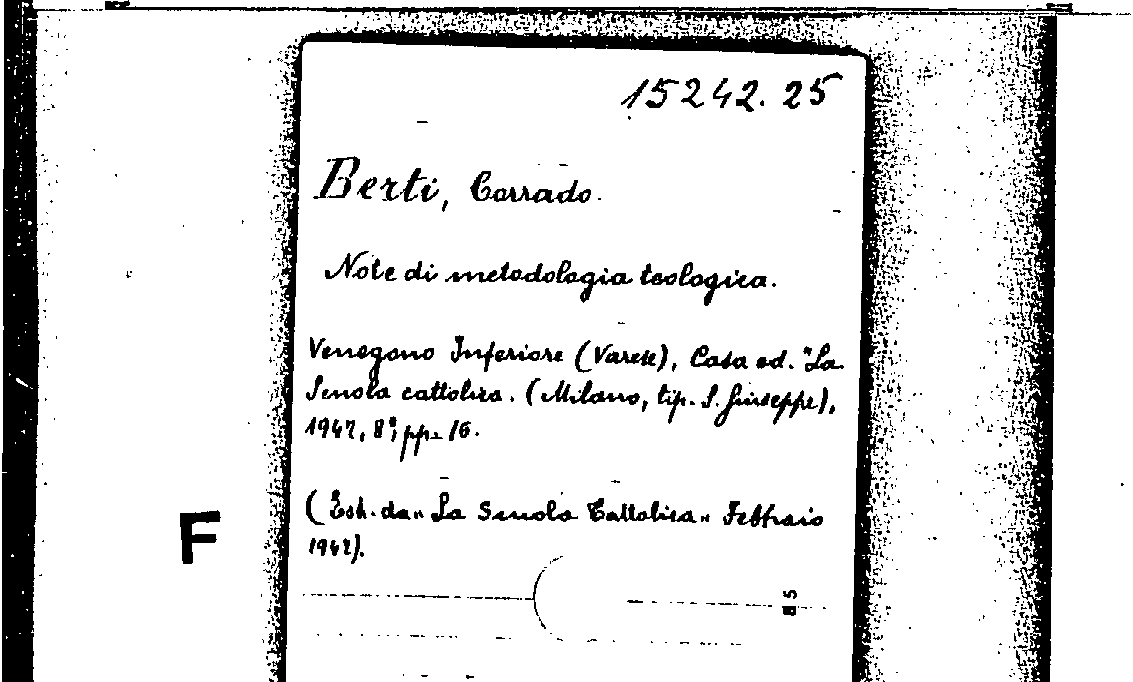 15242.25
Berti, Corrado.
Note di metodologia teologica.
Venegono Inferiore (Varese), Casa ed. "La
Scuola cattolica. (Milano, tip. S. Giuseppe),
1942, 8°, pp. 16.
(Estr. da „ La Scuola Cattolica „ Febbraio
1942).
F